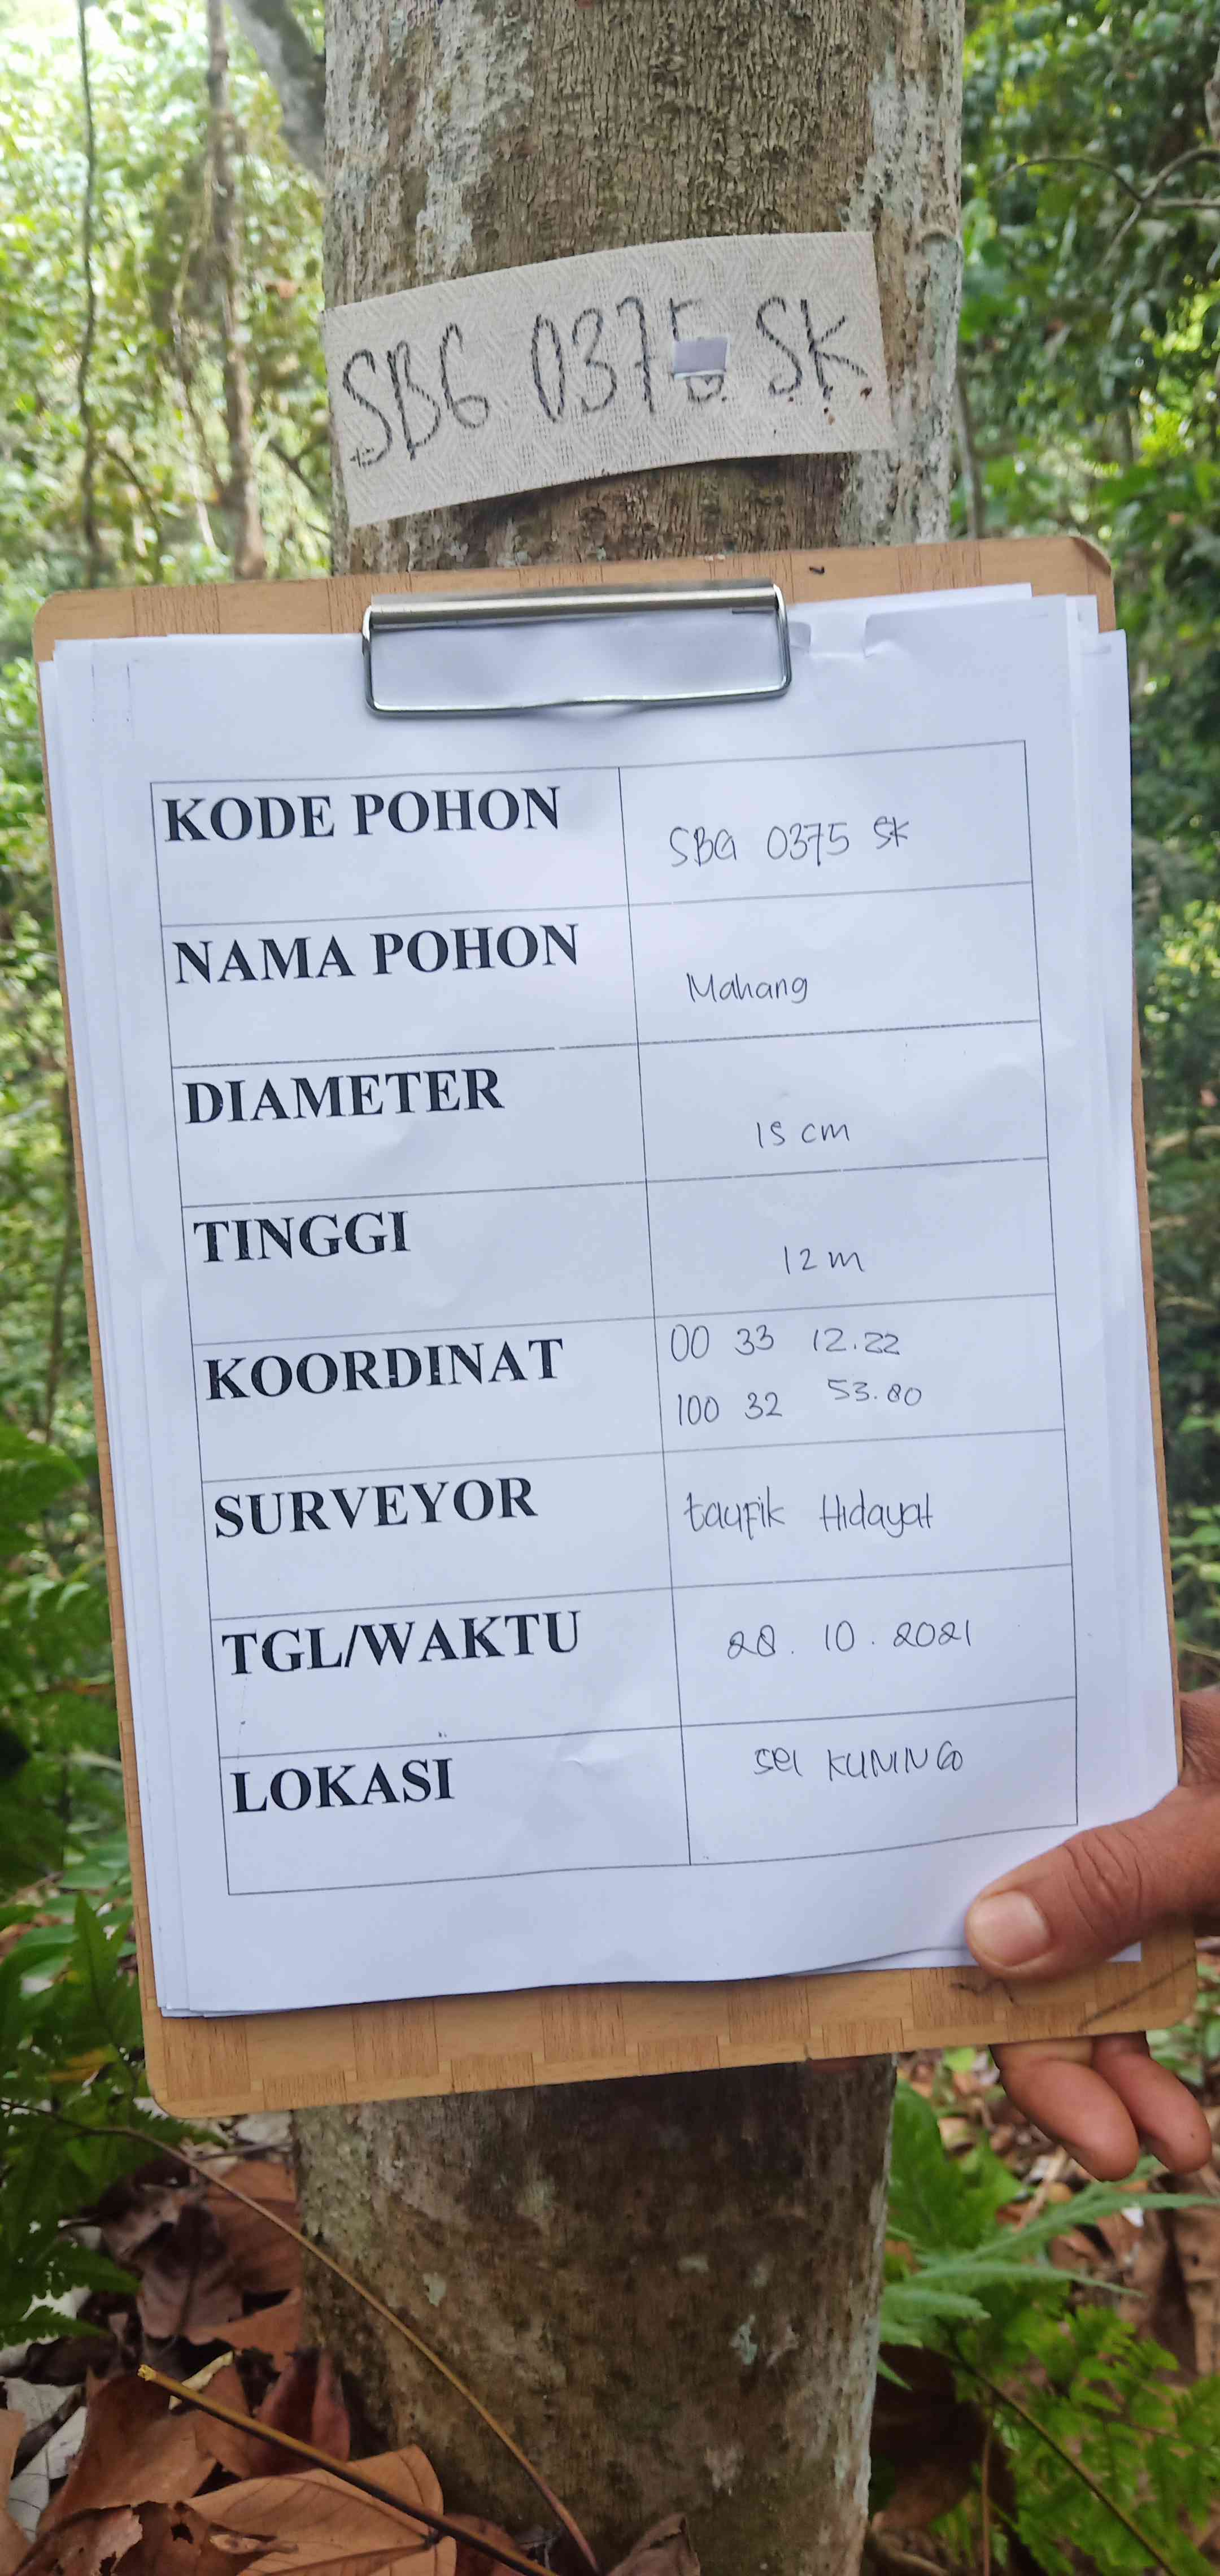 SBG 0375 SK
KODE POHON
SBG 0375 SK
NAMA POHON
Mahang
DIAMETER
15 cm
TINGGI
12 m
KOORDINAT
00 33 12.22
100 32 53.80
SURVEYOR
taufik Hidayat
TGL/WAKTU
28. 10. 2021
LOKASI
sei KUNING